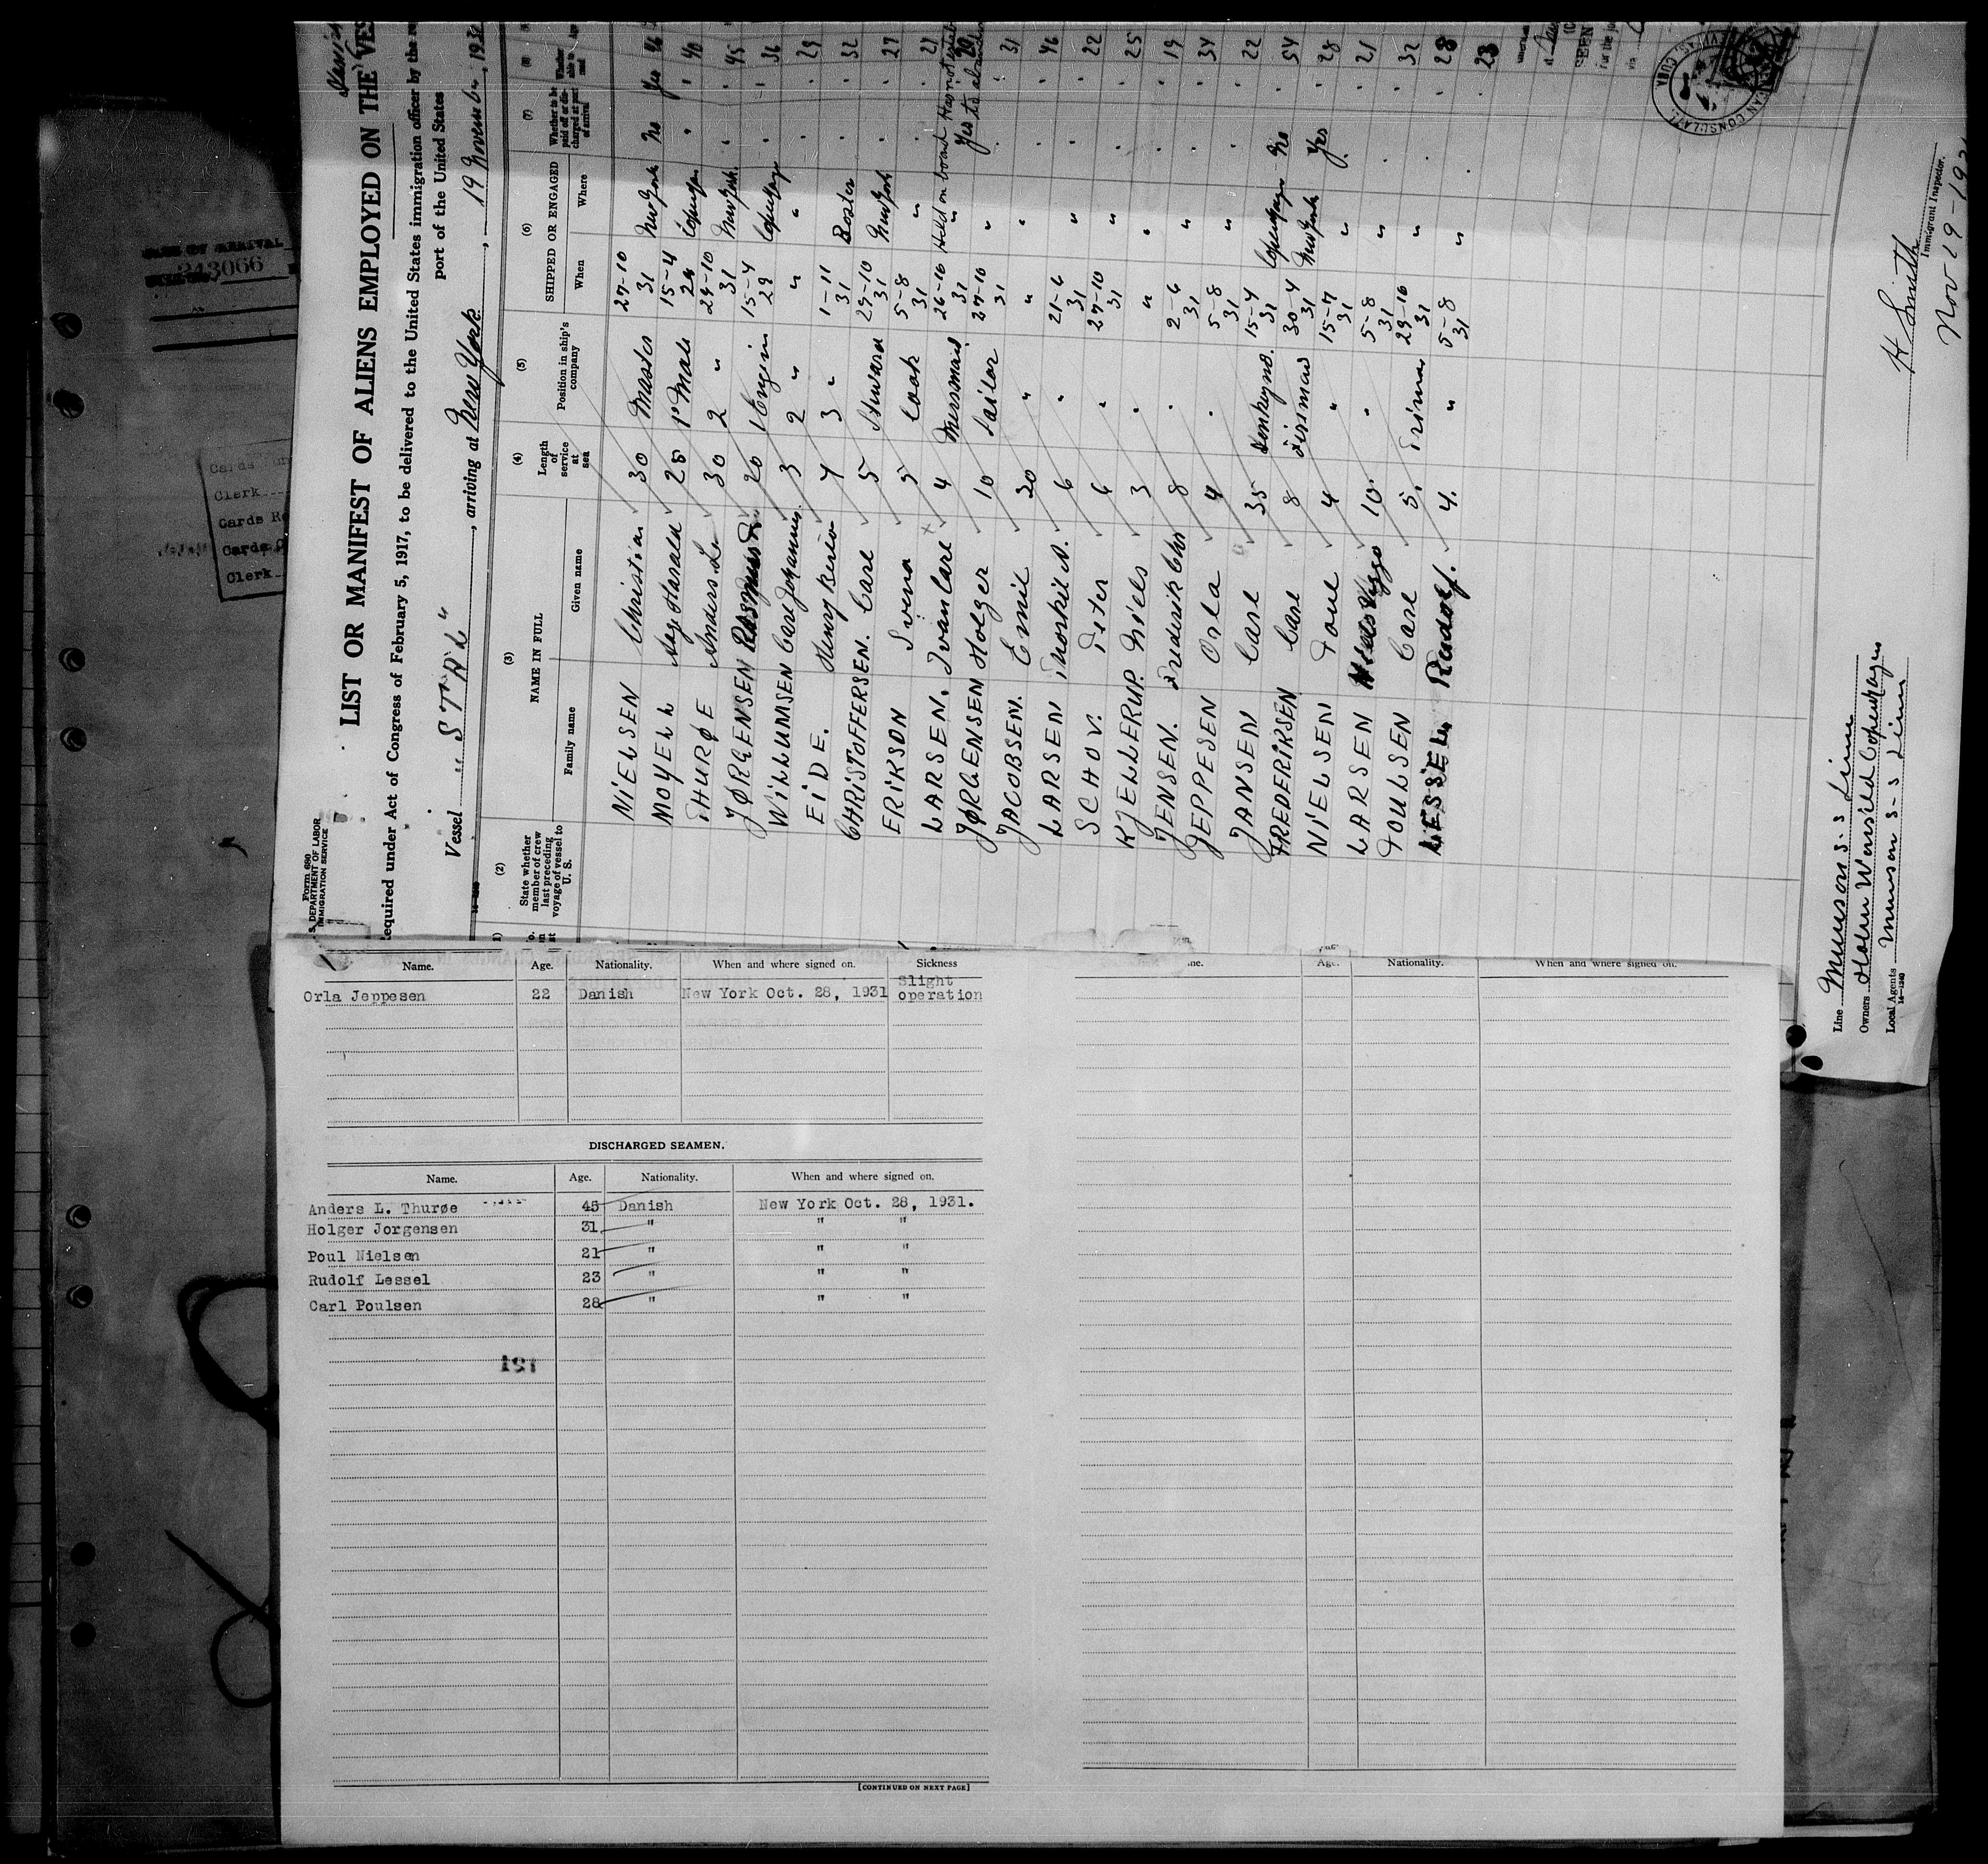 Form 680
U. S. DEPARTMENT OF LABOR
IMMIGRATION SERVICE
LIST OR MANIFEST OF ALIENS EMPLOYED ON THE VES
Required under Act of Congress of February 5, 1917, to be delivered to the United States immigration officer by the
port of the United States
Vessel "STAL", arriving at New York, 19 November, 193
(2) (3) (4) (5) (6) (7) (8)
State whether member of crew last preceding voyage of vessel to U. S. NAME IN FULL Length of service at sea Position in ship's company SHIPPED OR ENGAGED Whether to be paid off or discharged at port of arrival Whether able to read Age
Family name Given name When Where
NIELSEN Christian 30 Master 27-10 31 New York No Yes 46
MOYELL Aage Harald 25 1' Mate 15-4 Copenhagen " " 40
THURØE Anders 30 2 " 29-10 31 New York " " 45
JØRGENSEN Rasmus 20 1 Engin 15-4 29 Copenhagen " " 36
WILLUMSEN Carl Johannes 3 2 " " " " 29
EIDE. Henry 4 3 " 1-11 31 Boston " " 32
CHRISTOFFERSEN. Carl 5 Steward 29-10 31 New York " " 27
ERIKSON Svend 5 Cook 5-8 31 " " 21
LARSEN. Ivan Carl 4 Messmaid 26-10 31 " Held on board 20
JØRGENSEN Holger 10 Sailor 27-10 31 " Yes 31
JACOBSEN. Emil 30 " " " " " 46
LARSEN Thorkil A. 6 " 21-6 31 " " " 22
SCHOU. Peter 6 " 27-10 31 " " " 25
KJELLERUP. Niels 3 " " " " " 19
JENSEN. Frederik Chr 8 " 2-6 31 " " " 34
JEPPESEN Orla 4 " 5-8 31 " " " 22
JANSEN Carl 35 Donkeymd. 15-4 31 Copenhagen No " 54
FREDERIKSEN Carl 8 Firman 30-4 31 New York Yes " 28
NIELSEN Poul 4 " 15-7 31 " " " 21
LARSEN Viggo 10 " 5-8 31 " " " 32
POULSEN Carl 5. Trimer 29-10 31 " " " 28
LESSEL Rudolf. 4. " 5-8 31 " " " 23
AMERICAN CONSULATE
CUBA
SEEN
Line Munson S. S Line
Owners
Local Agents Munson S-S Line
14-1240
H Smith
Immigrant Inspector.
Nov 19-193
243066
Clerk
Cards
Clerk
Name. Age. Nationality. When and where signed on. Sickness
Orla Jeppesen 22 Danish New York Oct. 28, 1931 Slight operation
DISCHARGED SEAMEN.
Name. Age. Nationality. When and where signed on.
Anders L. Thurøe 45 Danish New York Oct. 28, 1931.
Holger Jorgensen 31 " " "
Poul Nielsen 21 " " "
Rudolf Lessel 23 " " "
Carl Poulsen 28 " " "
121
[CONTINUED ON NEXT PAGE]
Age. Nationality. When and where signed on.